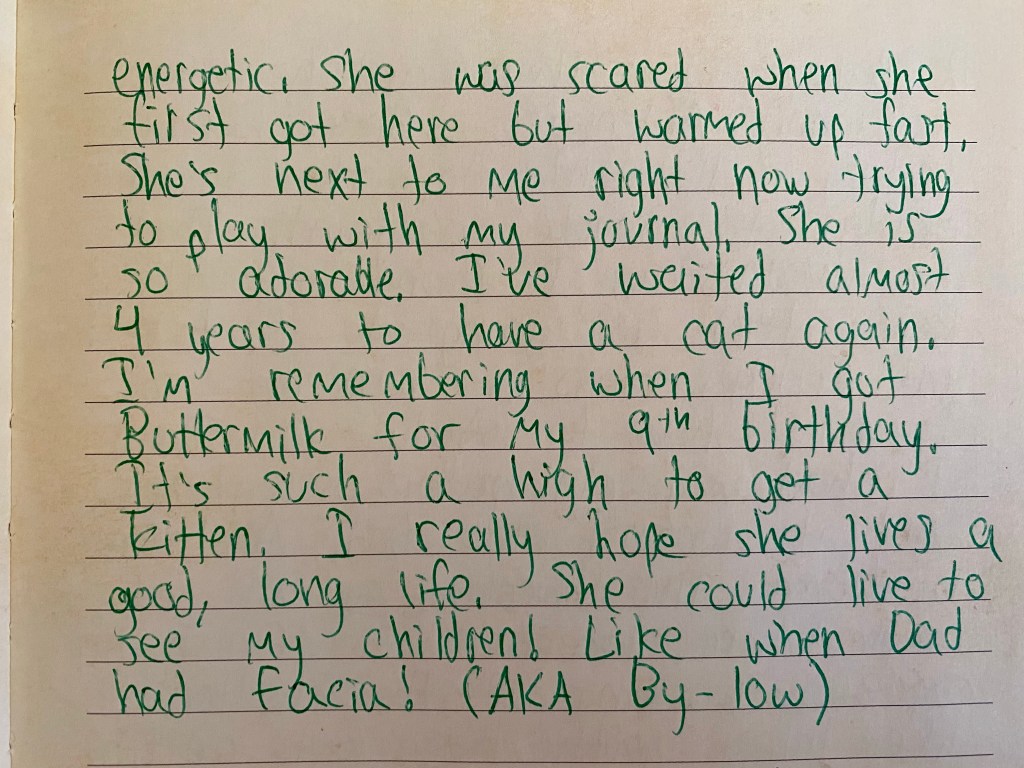 energetic. She was scared when she
first got here but warmed up fast.
She's next to me right now trying
to play with my journal. She is
so adorable. I've waited almost
4 years to have a cat again.
I'm remembering when I got
Buttermilk for my 9th birthday.
It's such a high to get a
kitten. I really hope she lives a
good, long life. She could live to
see my children! Like when Dad
had Facia! (AKA By-low)